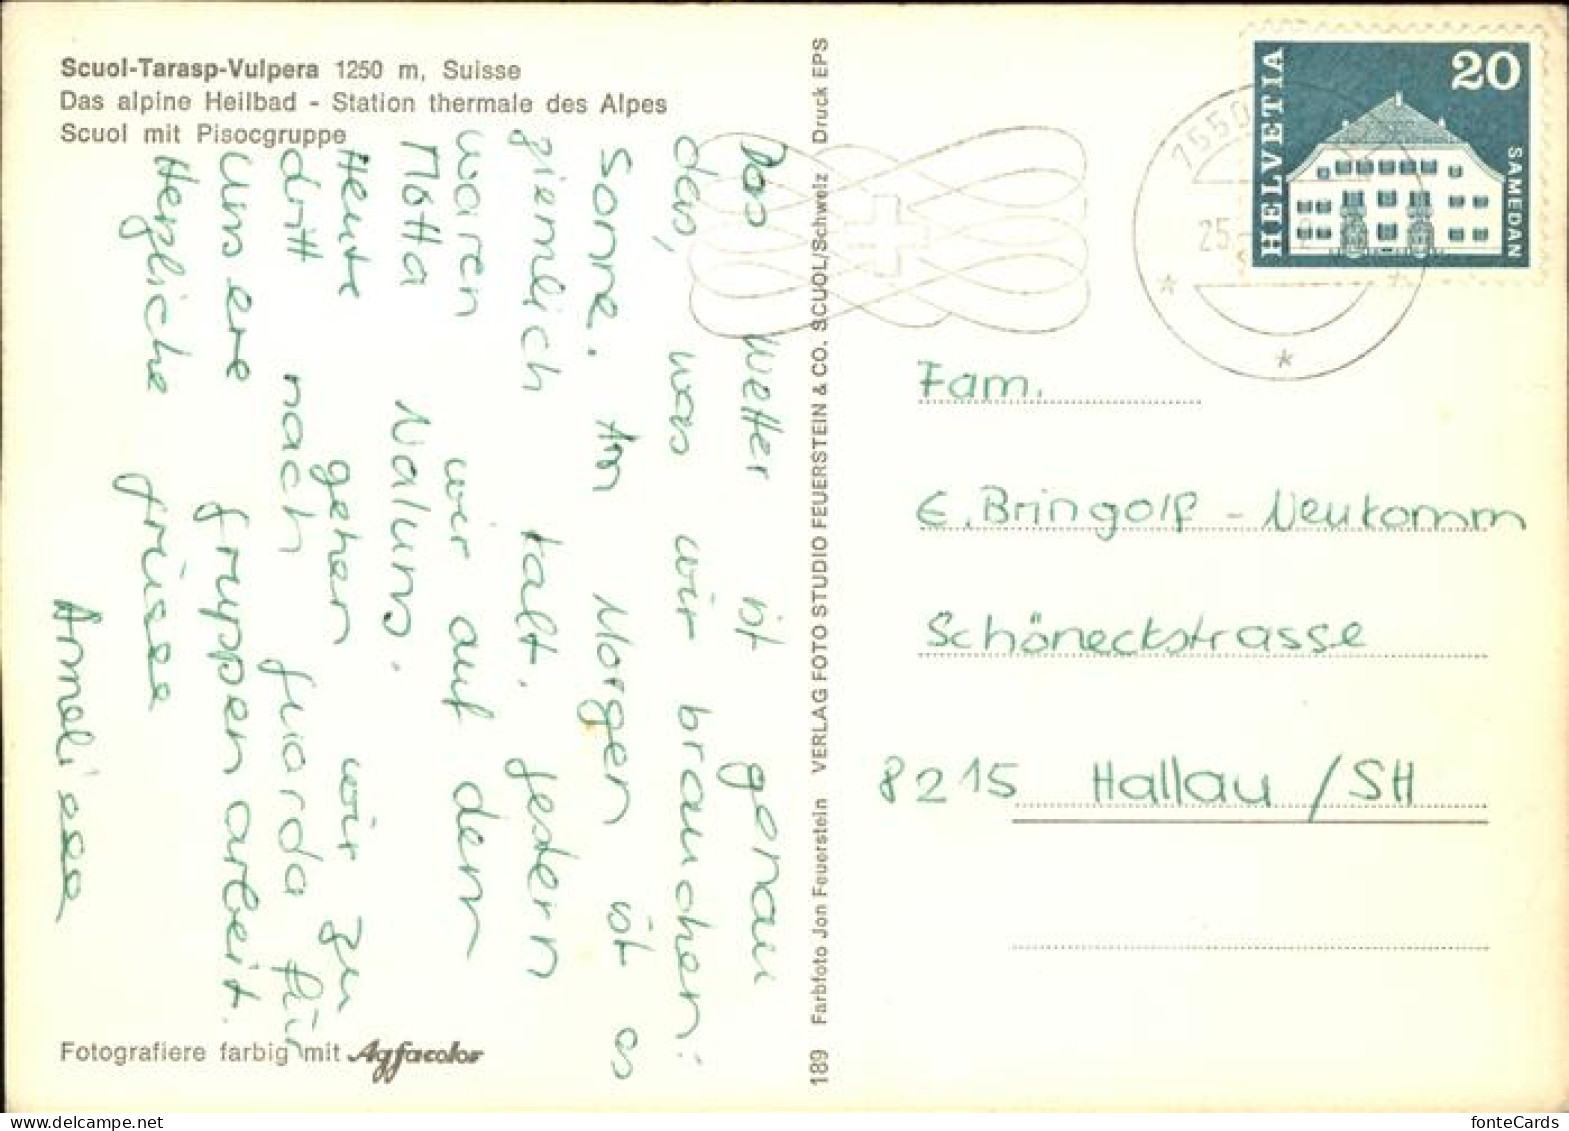 Scuol-Tarasp-Vulpera 1250 m, Suisse
Das alpine Heilbad - Station thermale des Alpes
Scuol mit Pisocgruppe
Das Wetter ist genau
das, was wir brauchen:
Sonne. Am Morgen ist es
ziemlich kalt. Gestern
waren wir auf dem
Motta Naluns.
Heute gehen wir zu
dritt nach Guarda für
unsere Gruppenarbeit.
Herzliche Grüsse
Anneliese
Fotografiere farbig mit Agfacolor
189 Farbfoto Jon Feuerstein VERLAG FOTO STUDIO FEUERSTEIN & CO. SCUOL/Schweiz Druck EPS
HELVETIA
20
SAMEDAN
7550
25.
Fam.
E. Bringolf - Neukomm
Schöneckstrasse
8215 Hallau / SH
fonteCards